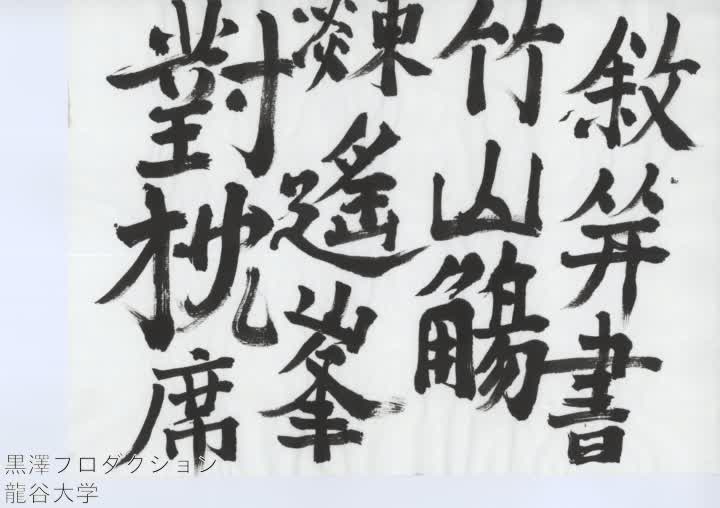 敘笄書
竹山觴
遙峯
對枕席
黒澤プロダクション
龍谷大学